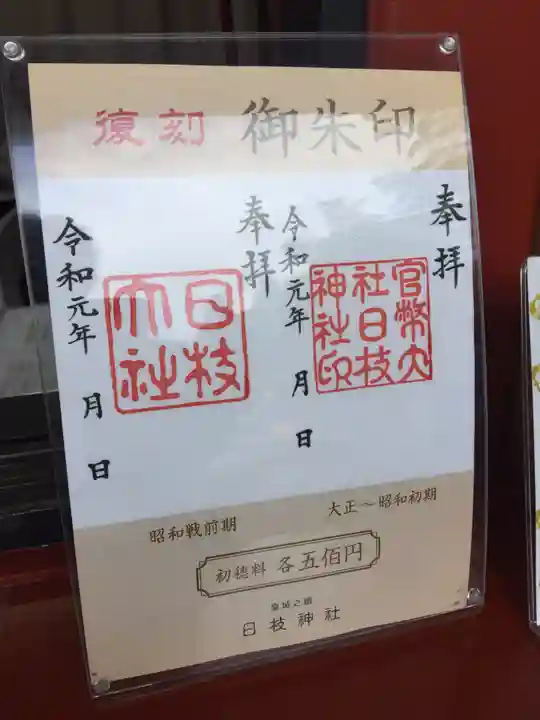 復刻 御朱印
奉拝
官幣大
社日枝
神社印
令和元年 月 日
奉拝
日枝
大社
令和元年 月 日
大正〜昭和初期
昭和戦前期
初穂料 各五佰円
皇城之鎮
日枝神社